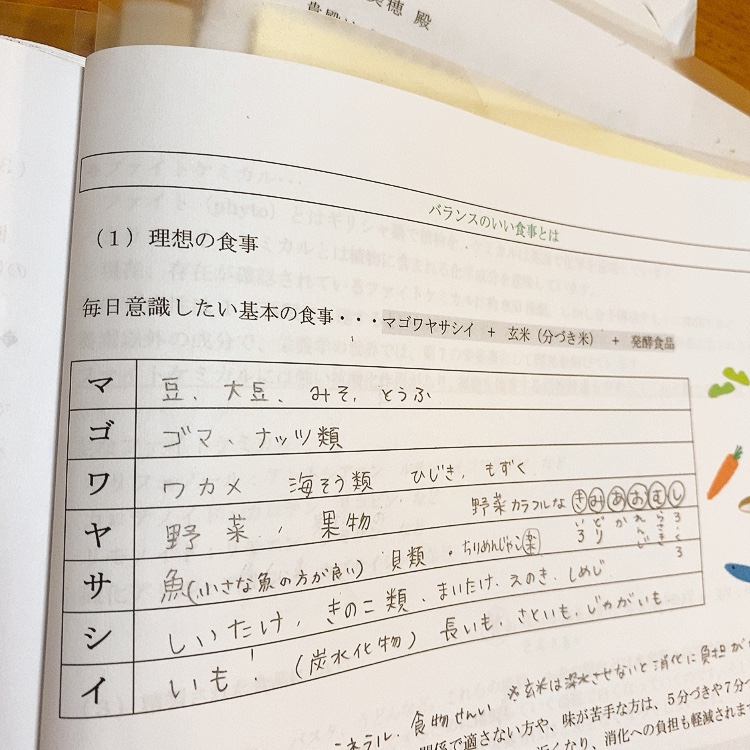 美穂 殿
貴殿は
バランスのいい食事とは
（1）理想の食事
毎日意識したい基本の食事・・・マゴワヤサシイ + 玄米（分づき米） + 発酵食品
マ 豆、大豆、みそ、とうふ
ゴ ゴマ、ナッツ類
ワ ワカメ 海そう類 ひじき、もずく
ヤ 野菜、果物 野菜カラフルな きみあおむし
いろ どり か れんじ らさき ろ・くろ
サ 魚(小さな魚の方が良い) 貝類・ちりめんじゃこ
シ しいたけ、きのこ類、まいたけ、えのき、しめじ
イ いも (炭水化物) 長いも、さといも、じゃがいも
※玄米は浸水させないと消化に負担が
ネラル、食物せんい
関係で適さない方や、味が苦手な方は、5分づきや7分づ
近くなり、消化への負担も軽減されま